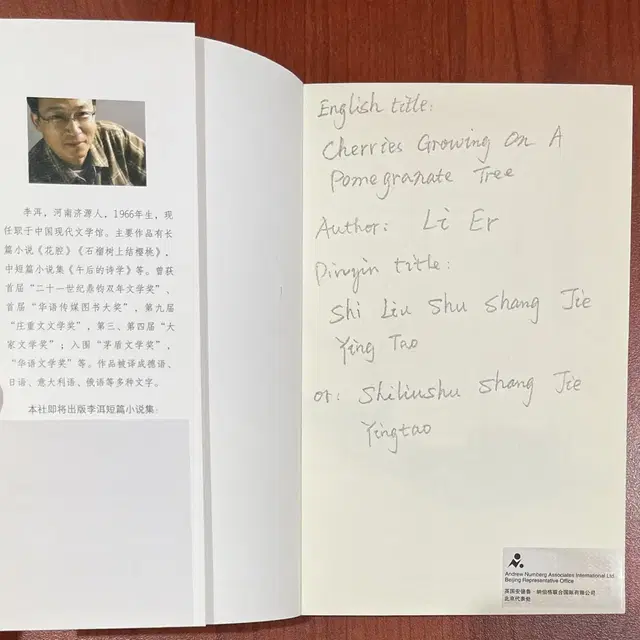 李洱，河南济源人，1966年生，现
任职于中国现代文学馆。主要作品有长
篇小说《花腔》《石榴树上结樱桃》，
中短篇小说集《午后的诗学》等。曾获
首届“二十一世纪鼎钧双年文学奖”、
首届“华语传媒图书大奖”，第九届
“庄重文文学奖”，第三、第四届“大
家文学奖”；入围“茅盾文学奖”，
“华语文学奖”等。作品被译成德语、
日语、意大利语、俄语等多种文字。
本社即将出版李洱短篇小说集：
English title:
Cherries Growing On A
Pomegranate Tree
Author: Li Er
Pinyin title:
Shi Liu Shu Shang Jie
Ying Tao
or: Shiliushu Shang Jie
Yingtao
Andrew Nurnberg Associates International Ltd.
Beijing Representative Office
英国安德鲁·纳伯格联合国际有限公司
北京代表处